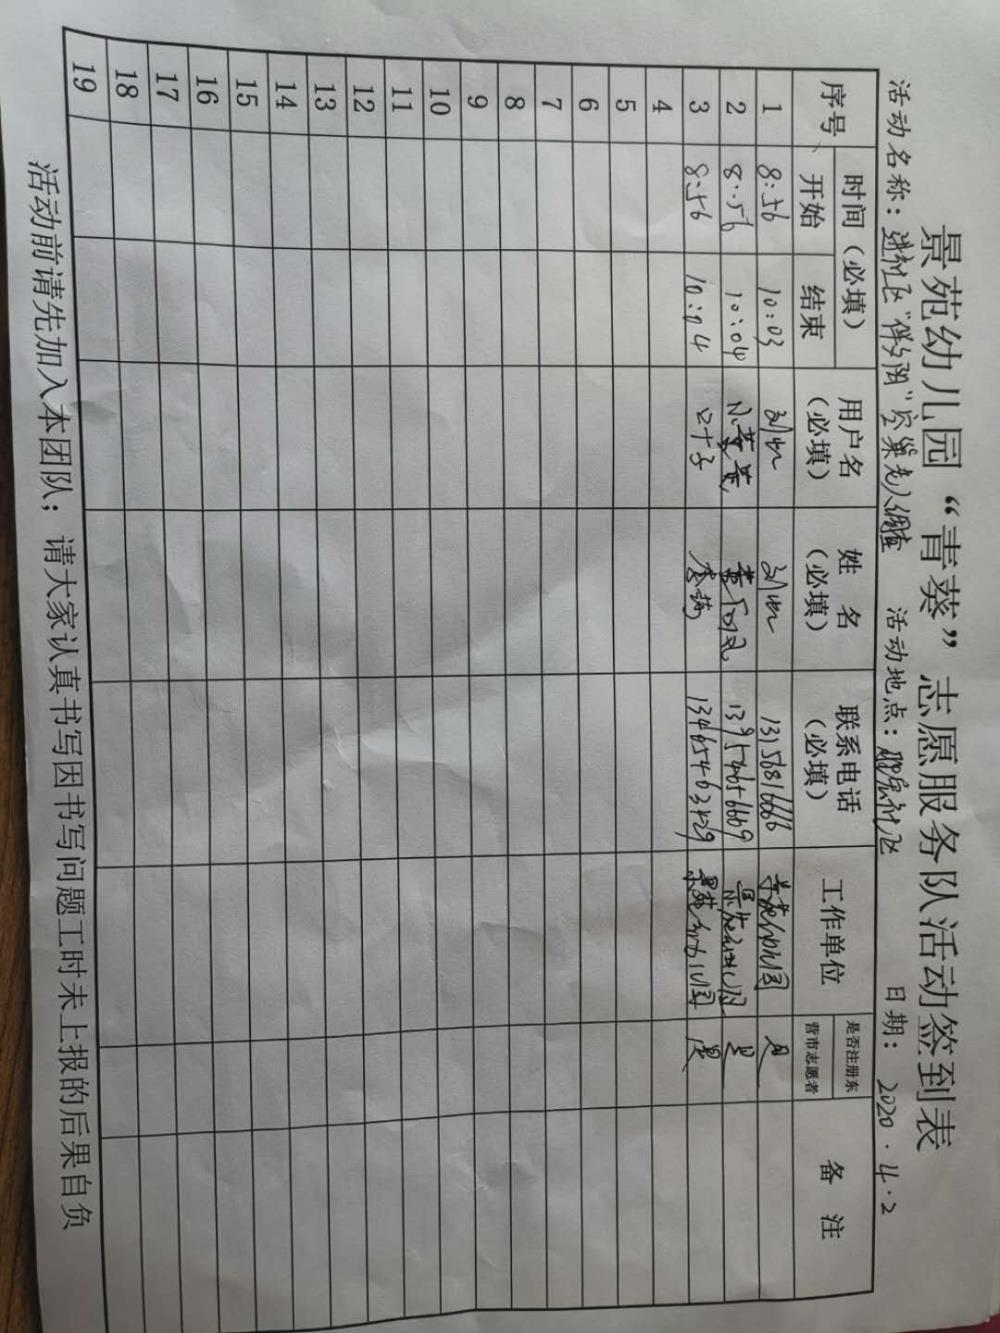 景苑幼儿园“青葵”志愿服务队活动签到表
活动名称：进社区“伴夕阳”空巢老人调查 活动地点：社区 日期：2020.4.2
序号 时间（必填） 用户名（必填） 姓名（必填） 联系电话（必填） 工作单位 是否注册东营市志愿者 备注
开始 结束
1 8:56 10:03 刘 刘 13156816666 景苑幼儿园 是
2 8:56 10:04 小董董 董 13954656669 景苑幼儿园 是
3 8:56 10:04 李 13465463429 景苑幼儿园 是
4
5
6
7
8
9
10
11
12
13
14
15
16
17
18
19
活动前请先加入本团队；请大家认真书写因书写问题工时未上报的后果自负